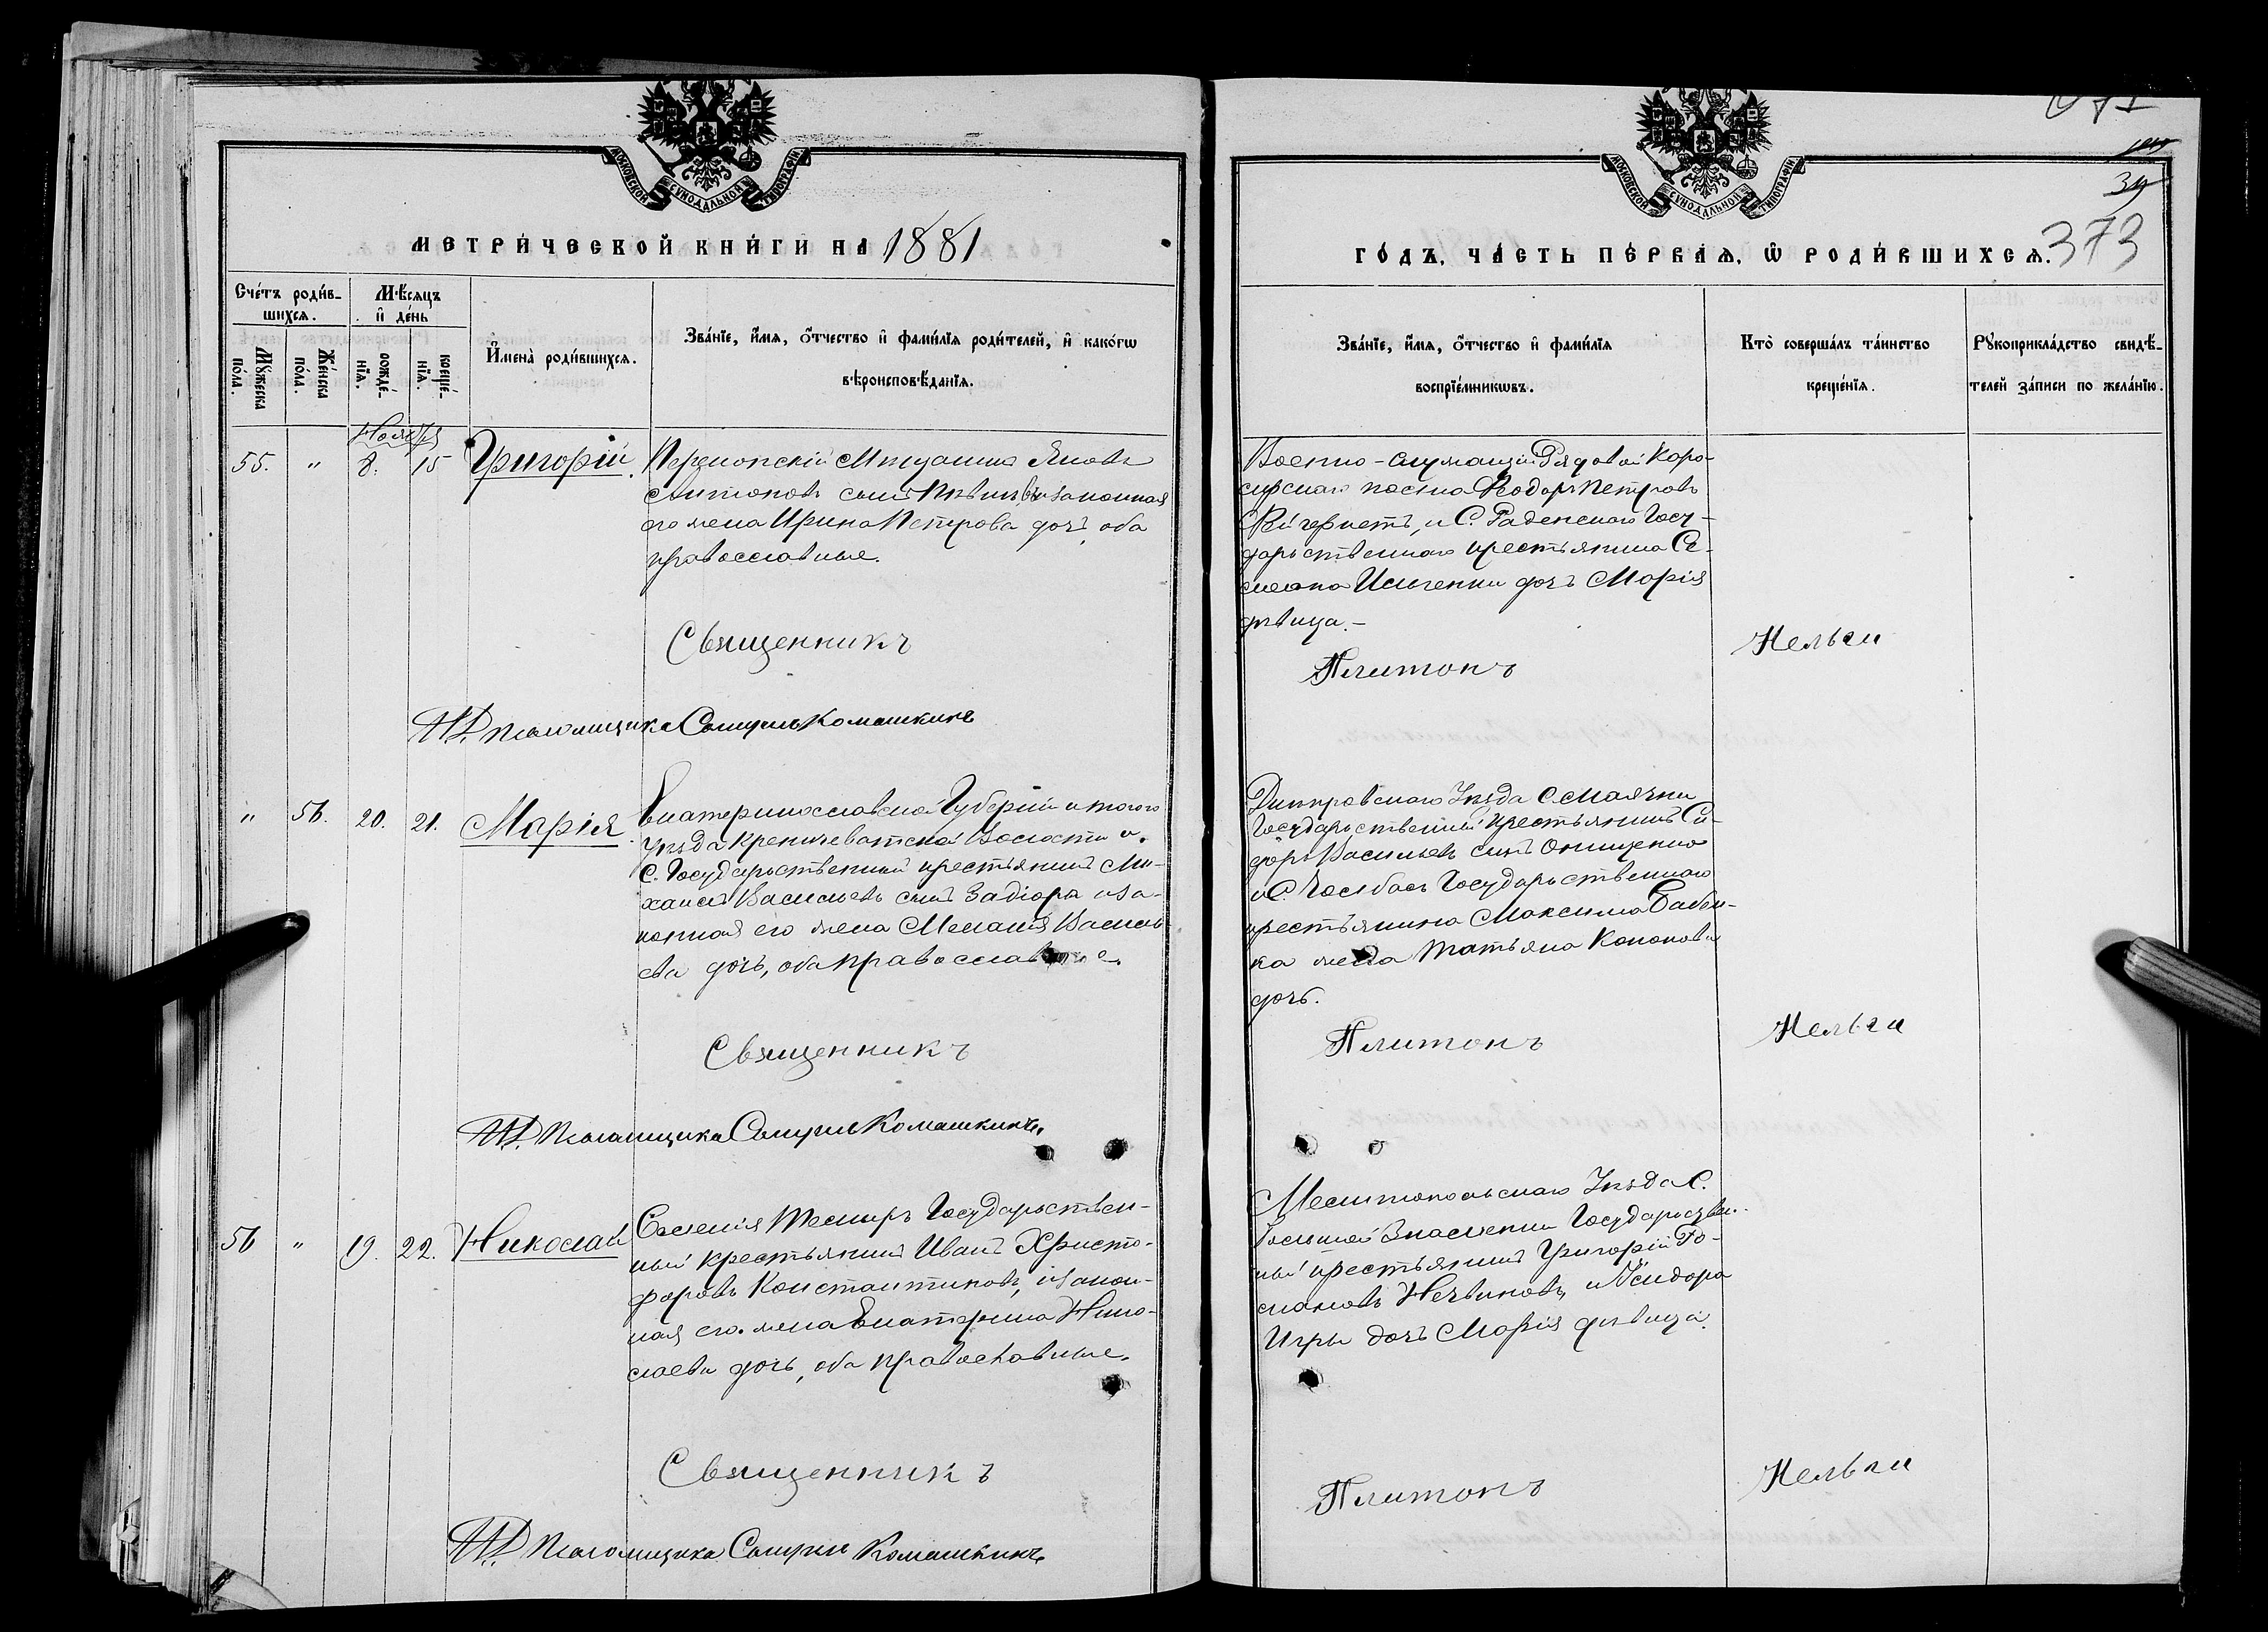 МОСКОВСКОЙ СУНОДАЛЬНОЙ ТИПОГРАФІИ
МЕТРИ́ЧЕСКОЙ КНИ́ГИ НА 1881
Сче́тъ роди́в-
шихсѧ.
Мѣ́сѧцъ
и҆ де́нь
Мꙋ́жеска по́ла.
Же́нска по́ла.
рожде́-нїѧ.
креще́-нїѧ.
И҆мена̀ роди́вшихсѧ.
Зва́нїе, и҆́мѧ, ѻ҆́тчество и҆ фами́лїѧ роди́телей, и҆ како́гѡ
вѣроисповѣ́данїѧ.
Ноября
55. " 8. 15 Григорій.
Перекопскій Мѣщанинъ Яковъ
Антоновъ сынъ законная
его жена Ирина Петрова дочь, оба
православные.
Священникъ
И.Д. Псаломщика Самуилъ Комашкинъ
" 56. 20. 21. Марія.
Екатеринославской Губерніи и того
Уѣзда Волости и
С. Государственный крестьянинъ Ми-
хаилъ Васильевъ сынъ Задіора и за-
конная его жена Меланія Василь-
ева дочь, оба православные.
Священникъ
И.Д. Псаломщика Самуилъ Комашкинъ.
56 " 19. 22. Николай
Селенія Государствен-
ный крестьянинъ Иванъ Христо-
форовъ Константиновъ, и закон-
ная его жена Екатерина Нико-
лаева дочь, оба православные.
Священникъ
И.Д. Псаломщика Самуилъ Комашкинъ
МОСКОВСКОЙ СУНОДАЛЬНОЙ ТИПОГРАФІИ
373
ГО́ДЪ, ЧА́СТЬ ПЕ́РВАѦ, Ѡ҆ РОДИ́ВШИХСѦ.
Зва́нїе, и҆́мѧ, ѻ҆́тчество и҆ фами́лїѧ
воспрїе́мникѡвъ.
Кто̀ соверша́лъ та́инство
креще́нїѧ.
Рꙋкоприкла́дство свидѣ́-
телей за́писи по жела́нїю.
Военно-служащій Рядовой
Ѳедоръ Петровъ
и С. Раденскаго Госу-
дарственнаго крестьянина Се-
мена Ильченки дочь Марія
дѣвица.-
Платонъ Нельги
Днѣпровскаго Уѣзда С. Маячки
Государственный крестьянинъ Си-
доръ Васильевъ сынъ Онищенко
и С. Государственнаго
крестьянина Максима Бабен-
ка жена Татьяна Кононова
дочь.
Платонъ Нельги
Мелитопольскаго Уѣзда С.
Большой Знаменки Государствен-
ный крестьянинъ Григорій Ро-
мановъ и Исидора
Игры дочь Марія дѣвица.
Платонъ Нельги